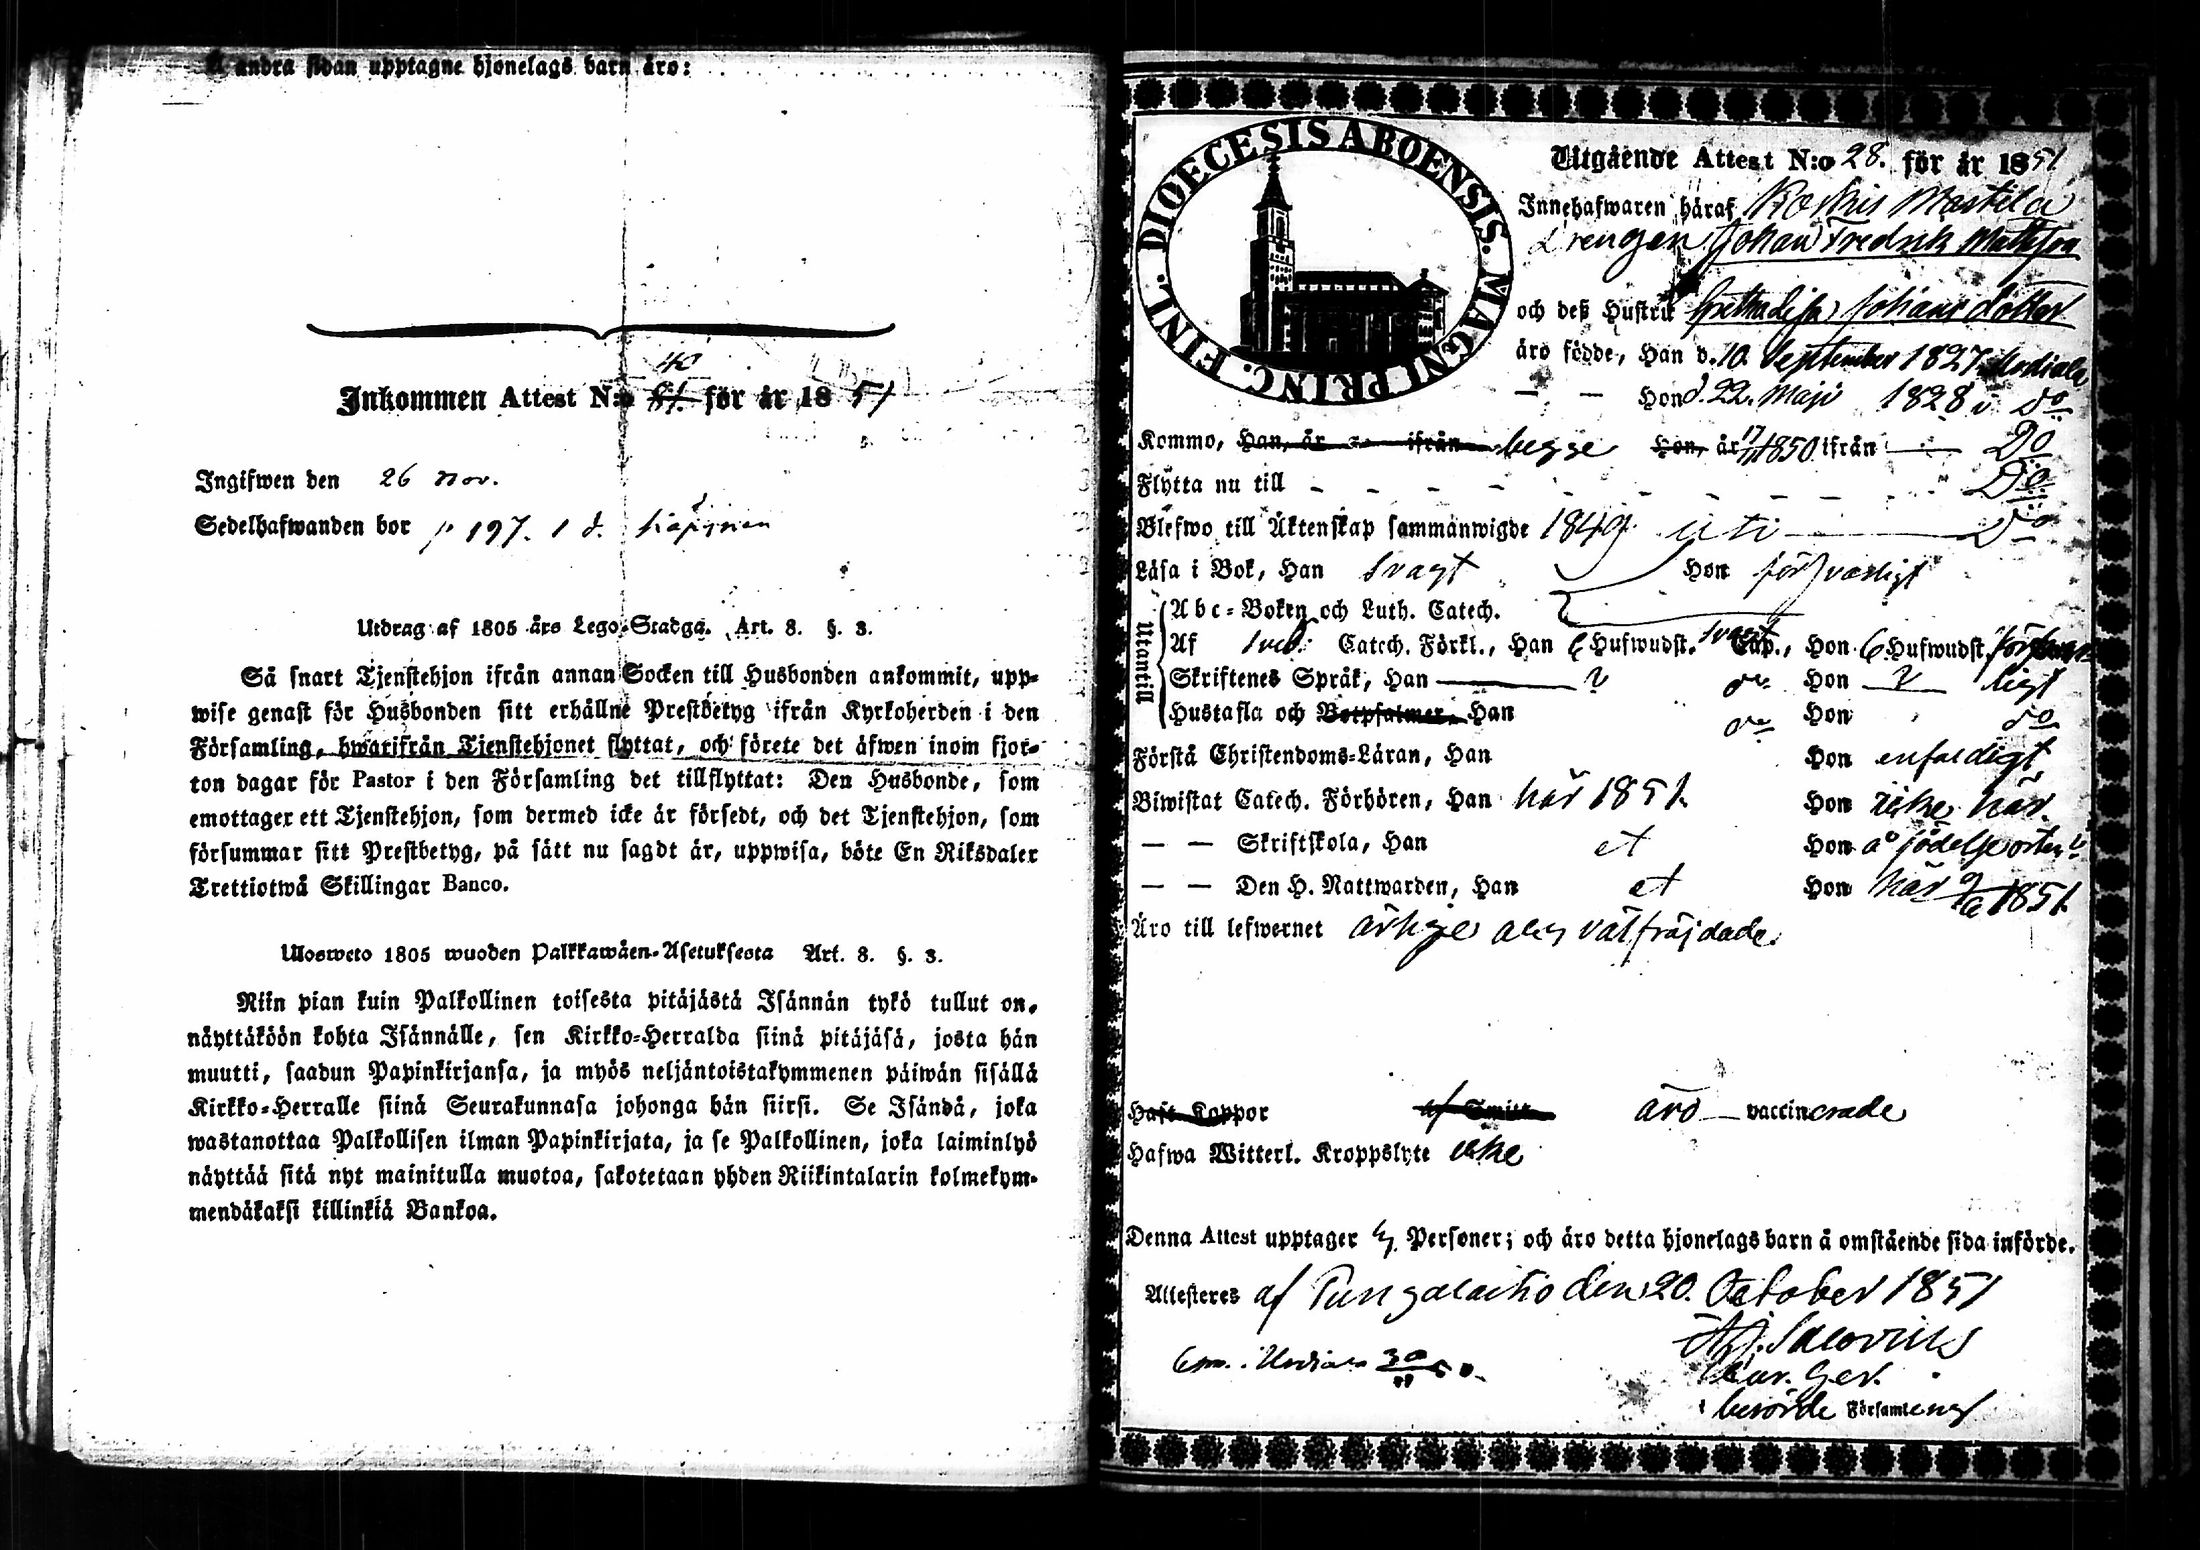 andra sidan upptagne hjonelags barn äro:
40
Inkommen Attest N:o 81. för år 1851
Ingifwen den 26 nov.
Sedelhafwanden bor p 197. 1 d.
Utdrag af 1805 års Lego-Stadga. Art. 8. §. 3.
Så snart Tjenstehjon ifrån annan Socken till Husbonden ankommit, upp-
wise genast för Husbonden sitt erhållne Prestbetyg ifrån Kyrkoherden i den
Församling, hwarifrån Tjenstehjonet flyttat, och förete det äfwen inom fjor-
ton dagar för Pastor i den Församling det tillflyttat: Den Husbonde, som
emottager ett Tjenstehjon, som dermed icke är försedt, och det Tjenstehjon, som
försummar sitt Prestbetyg, på sätt nu sagdt är, uppwisa, böte En Riksdaler
Trettiotwå Skillingar Banco.
Ulosweto 1805 wuoden Palkkawäen-Asetuksesta Art. 8. §. 3.
Niin pian kuin Palkollinen toisesta pitäjästä Isännän tykö tullut on,
näyttäköön kohta Isännälle, sen Kirkko-Herralda siinä pitäjäsä, josta hän
muutti, saadun Papinkirjansa, ja myös neljäntoistakymmenen päiwän sisällä
Kirkko-Herralle siinä Seurakunnasa johonga hän siirsi. Se Isändä, joka
wastanottaa Palkollisen ilman Papinkirjata, ja se Palkollinen, joka laiminlyö
näyttää sitä nyt mainitulla muotoa, sakotetaan yhden Riikintalarin kolmekym-
mendäkaksi killinkiä Bankoa.
DIOECESIS ABOENSIS. MAGNI PRINC. FINL.
Utgående Attest N:o 28. för år 1851
Innehafwaren häraf Koskis Mattila
Drengen Johan Fredrik Mattsson
och deß Hustru Greta Lisa Johans dotter
äro födde, Han d. 10. September 1827 i Urdiala
— — Hon d. 22. Maji 1828 i Do
Kommo, Han, är — ifrån begge Hon, är 17/11 1850 ifrån — Do
Flytta nu till - - - - - - - - - - - Do
Blefwo till Äktenskap sammanwigde 1849 uti — Do
Läsa i Bok, Han svagt Hon försvarligt
Utantill
Abc-Boken och Luth. Catech.
Af Sveb. Catech. Förkl., Han 6 Hufwudst. svagt Cap., Hon 6 Hufwudst. försvar
Skriftenes Språk, Han — ? do Hon ? ligt
Hustafla och Botpsalmer, Han do Hon do
Förstå Christendoms-Läran, Han Hon enfaldigt
Biwistat Catech. Förhören, Han här 1851. Hon icke här.
— — Skriftskola, Han et Hon å födelseorten
— — Den H. Nattwarden, Han et Hon här 1851.
Äro till lefwernet ärlige och välfräjdade.
Haft Koppor af Smitt. äro — vaccinerade
Hafwa Witterl. Kroppslyte icke
Denna Attest upptager 2. Personer; och äro detta hjonelags barn å omstående sida införde.
Attesteres af Pungalaitio den 20. October 1851
Salovius
berörde Församling